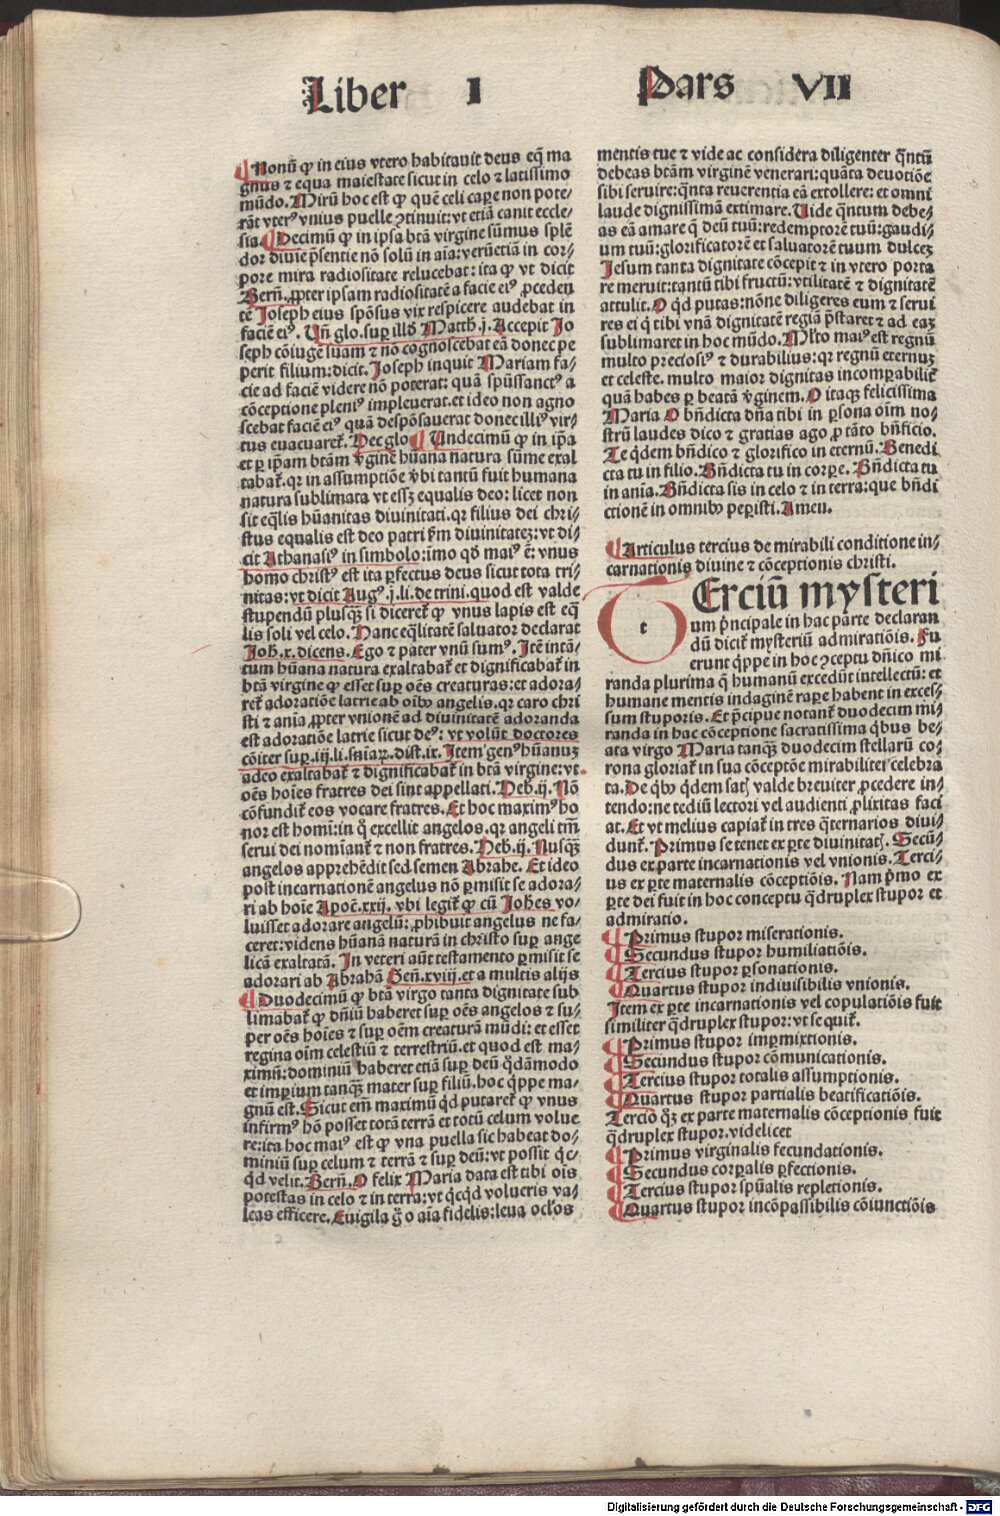 Liber I Pars VII
¶ Nonū ꝙ in eius vtero habitauit deus eq̄ ma
gnus ⁊ equa maiestate sicut in celo ⁊ latissimo
mūdo. Mirū hoc est ꝙ quē celi capere non pote/
rāt vterꝰ vnius puelle ↄtinuit: vt etiā canit eccle/
sia. ¶ Decimū ꝙ in ipsa btā virgine sūmus splē
dor diuīe p̄sentie nō solū in aīa: verūetiā in cor/
pore mira radiositate relucebat: ita ꝙ vt dicit
Bern̄. ꝓpter ipsam radiositatē a facie eiꝰ ꝓceden
tē Joseph eius spōsus vix respicere audebat in
faciē eiꝰ. Un̄ glo. suꝑ illd̓ Matth̓. j. Accepit Jo
seph cōiugē suam ⁊ nō cognoscebat eā donec pe
perit filium: dicit. Joseph inquit Mariam fa/
cie ad faciē videre nō poterat: quā spūssanctꝰ a
cōceptione pleniꝰ impleuerat. et ideo non agno
scebat faciē eiꝰ quā despōsauerat donec illiꝰ vir/
tus euacuaret̓. Hec glo. ¶ Undecimū ꝙ in ip̄a
et ꝑ ip̄am btām v̓ginē hūana natura sūme exal
tabat̓. qꝛ in assumptiōe v̓bi tantū fuit humana
natura sublimata vt essꝫ equalis deo: licet non
sit eq̄lis hūanitas diuinitati. qꝛ filius dei chri/
stus equalis est deo patri ẜm diuinitatē: vt di/
cit Athanasiꝰ in simbolo: īmo qd̓ maiꝰ ē: vnus
homo christꝰ est ita ꝑfectus deus sicut tota tri/
nitas: vt dicit Augꝰ. j. li. de trini. quod est valde
stupendū plusqꝫ si diceret̓ ꝙ vnus lapis est eq̄
lis soli vel celo. Hanc eq̄litatē saluator declarat
Joh̓. x. dicens. Ego ⁊ pater vnū sumꝰ. Itē intā/
tum hūana natura exaltabat̓ et dignificabat̓ in
btā virgine ꝙ esset suꝑ oēs creaturas: et adora/
ret̓ adoratiōe latrie ab oībꝰ angelis. qꝛ caro chri
sti ⁊ anīa ꝓpter vnionē ad diuinitatē adoranda
est adoratiōe latrie sicut deꝰ: vt volūt doctores
cōiter suꝑ. iij. li. sniaꝝ. dist. ix. Item genꝰ hūanuꝫ
adeo exaltabat̓ ⁊ dignificabat̓ in btā virgine: vt
oēs hoīes fratres dei sint appellati. Heb. ij. Nō
cōfundit̓ eos vocare fratres. Et hoc maximꝰ ho
nor est homī: in q̊ excellit angelos. qꝛ angeli tm̄
serui dei nomīant̓ ⁊ non fratres. Heb. ij. Nusqꝫ
angelos apprehēdit sed semen Abrahe. Et ideo
post incarnationē angelus nō ꝑmisit se adora/
ri ab hoīe Apoc̄. xxij. vbi legit̓ ꝙ cū Joh̓es vo/
luisset adorare angelū: ꝓhibuit angelus ne fa/
ceret: videns hūanā naturā in christo suꝑ ange
licā exaltatā. In veteri aūt testamento ꝑmisit se
adorari ab Abrahā Gen̄. xviij. et a multis alijs
¶ Duodecimū ꝙ btā virgo tanta dignitate sub
limabat̓ ꝙ dn̄iū haberet suꝑ oēs angelos ⁊ su/
per oēs hoīes ⁊ suꝑ oēm creaturā mūdi: et esset
regina oīm celestiū ⁊ terrestriū. et quod est ma/
ximū: dominiū haberet etiā suꝑ deū q̊dāmodo
et imꝑium tanqꝫ mater suꝑ filiū. hoc q̓ppe ma/
gnū est. Sicut em̄ maximū qd̓ putaret̓ ꝙ vnus
infirmꝰ hō posset totā terrā et totū celum volue
re: ita hoc maiꝰ est ꝙ vna puella sic habeat do/
miniū suꝑ celum ⁊ terrā ⁊ suꝑ deū: vt possit q̓c/
qd̓ velit. Bern̄. O felix Maria data est tibi oīs
potestas in celo ⁊ in terra: vt q̓cqd̓ volueris va/
leas efficere. Euigila g̊ o aīa fidelis: leua oclōs
mentis tue ⁊ vide ac considera diligenter q̄ntū
debeas btām virginē venerari: quāta deuotiōe
sibi seruire: q̄nta reuerentia eā extollere: et omni
laude dignissimā extimare. Uide q̄ntum debe/
as eā amare q̄ deū tuū: redemptorē tuū: gaudi/
um tuū: glorificatorē et saluatorē tuum dulceꝫ
Jesum tanta dignitate cōcepit ⁊ in vtero porta
re meruit: tantū tibi fructū: vtilitatē ⁊ dignitatē
attulit. O qd̓ putas: nōne diligeres eum ⁊ serui
res ei q̓ tibi vnā dignitatē regiā p̄staret ⁊ ad eaꝫ
sublimaret in hoc mūdo. Ml̓to maiꝰ est regnū
multo preciosiꝰ ⁊ durabilius: qꝛ regnū eternuꝫ
et celeste. multo maior dignitas incomꝑabilit̓
quā habes ꝑ beatā v̓ginem. O itaqꝫ felicissima
Maria O bn̄dicta dn̄a tibi in ꝑsona oīm no/
strū laudes dico ⁊ gratias ago ꝓ tāto bn̄ficio.
Te q̓dem bn̄dico ⁊ glorifico in eternū. Benedi
cta tu in filio. Bn̄dicta tu in corꝑe. Bn̄dicta tu
in anīa. Bn̄dicta sis in celo ⁊ in terra: que bn̄di
ctionē in omnibꝰ peꝑisti. Amen.
¶ Articulus tercius de mirabili conditione in/
carnationis diuine ⁊ cōceptionis christi.
t Erciū mysteri
um p̓ncipale in hac parte declaran
dū dicit̓ mysteriū admiratiōis. Fu
erunt q̓ppe in hoc ↄceptu dn̄ico mi
randa plurima q̄ humanū excedūt intellectū: et
humane mentis indaginē raꝑe habent in exces/
sum stuporis. Et p̓cipue notant̓ duodecim mi/
randa in hac cōceptione sacratissima q̓bus be/
ata virgo Maria tanqꝫ duodecim stellarū co/
rona gloriat̓ in sua cōceptōe mirabiliter celebra
ta. De q̓bꝰ q̓dem satꝭ valde breuiter ꝓcedere in/
tendo: ne tediū lectori vel audienti ꝓlixitas faci
at. Et vt melius capiat̓ in tres q̓ternarios diui/
dunt̓. Primus se tenet ex ꝑte diuinitatꝭ. Secū/
dus ex parte incarnationis vel vnionis. Terci/
us ex ꝑte maternalis cōceptiōis. Nam p̓mo ex
ꝑte dei fuit in hoc conceptu q̓druplex stupor et
admiratio.
¶ Primus stupor miserationis.
¶ Secundus stupor humiliatiōis.
¶ Tercius stupor ꝑsonationis.
¶ Quartus stupor indiuisibilis vnionis.
Item ex ꝑte incarnationis vel copulatiōis fuit
similiter q̓druplex stupor: vt sequit̓.
¶ Primus stupor imꝑmixtionis.
¶ Secundus stupor cōmunicationis.
¶ Tercius stupor totalis assumptionis.
¶ Quartus stupor partialis beatificatiōis.
Tercio qꝫ ex parte maternalis cōceptionis fuit
q̓druplex stupor. videlicet
¶ Primus virginalis fecundationis.
¶ Secundus corꝑalis ꝑfectionis.
¶ Tercius stupor spūalis repletionis.
¶ Quartus stupor incōpassibilis cōiunctiōis
Digitalisierung gefördert durch die Deutsche Forschungsgemeinschaft - DFG